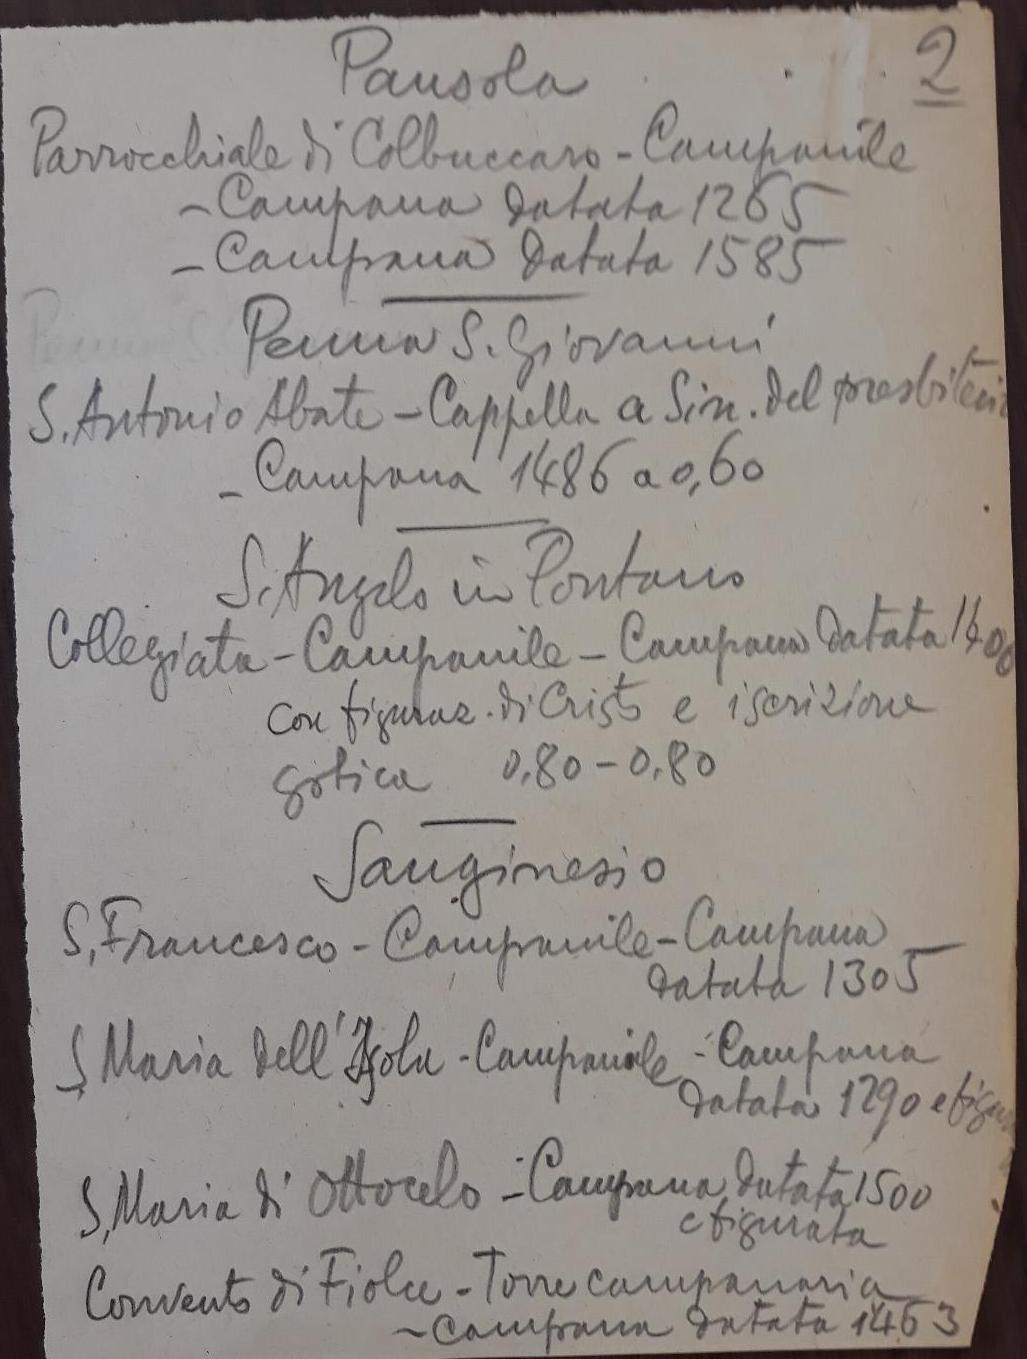 2
Pausola
Parrocchiale di Colbuccaro - Campanile
- Campana datata 1265
- Campana datata 1585
Penna S. Giovanni
S. Antonio Abate - Cappella a Sin. del presbiterio
- Campana 1486 a 0,60
S. Angelo in Pontano
Collegiata - Campanile - Campana datata 1400
con figuraz. di Cristo e iscrizione
gotica 0,80 - 0,80
Sanginesio
S. Francesco - Campanile - Campana
datata 1305
S. Maria dell'Isola - Campanile - Campana
datata 1290 e
S. Maria di Ottocelo - Campana datata 1500
e figurata
Convento di - Torre campanaria
- campana datata 1463